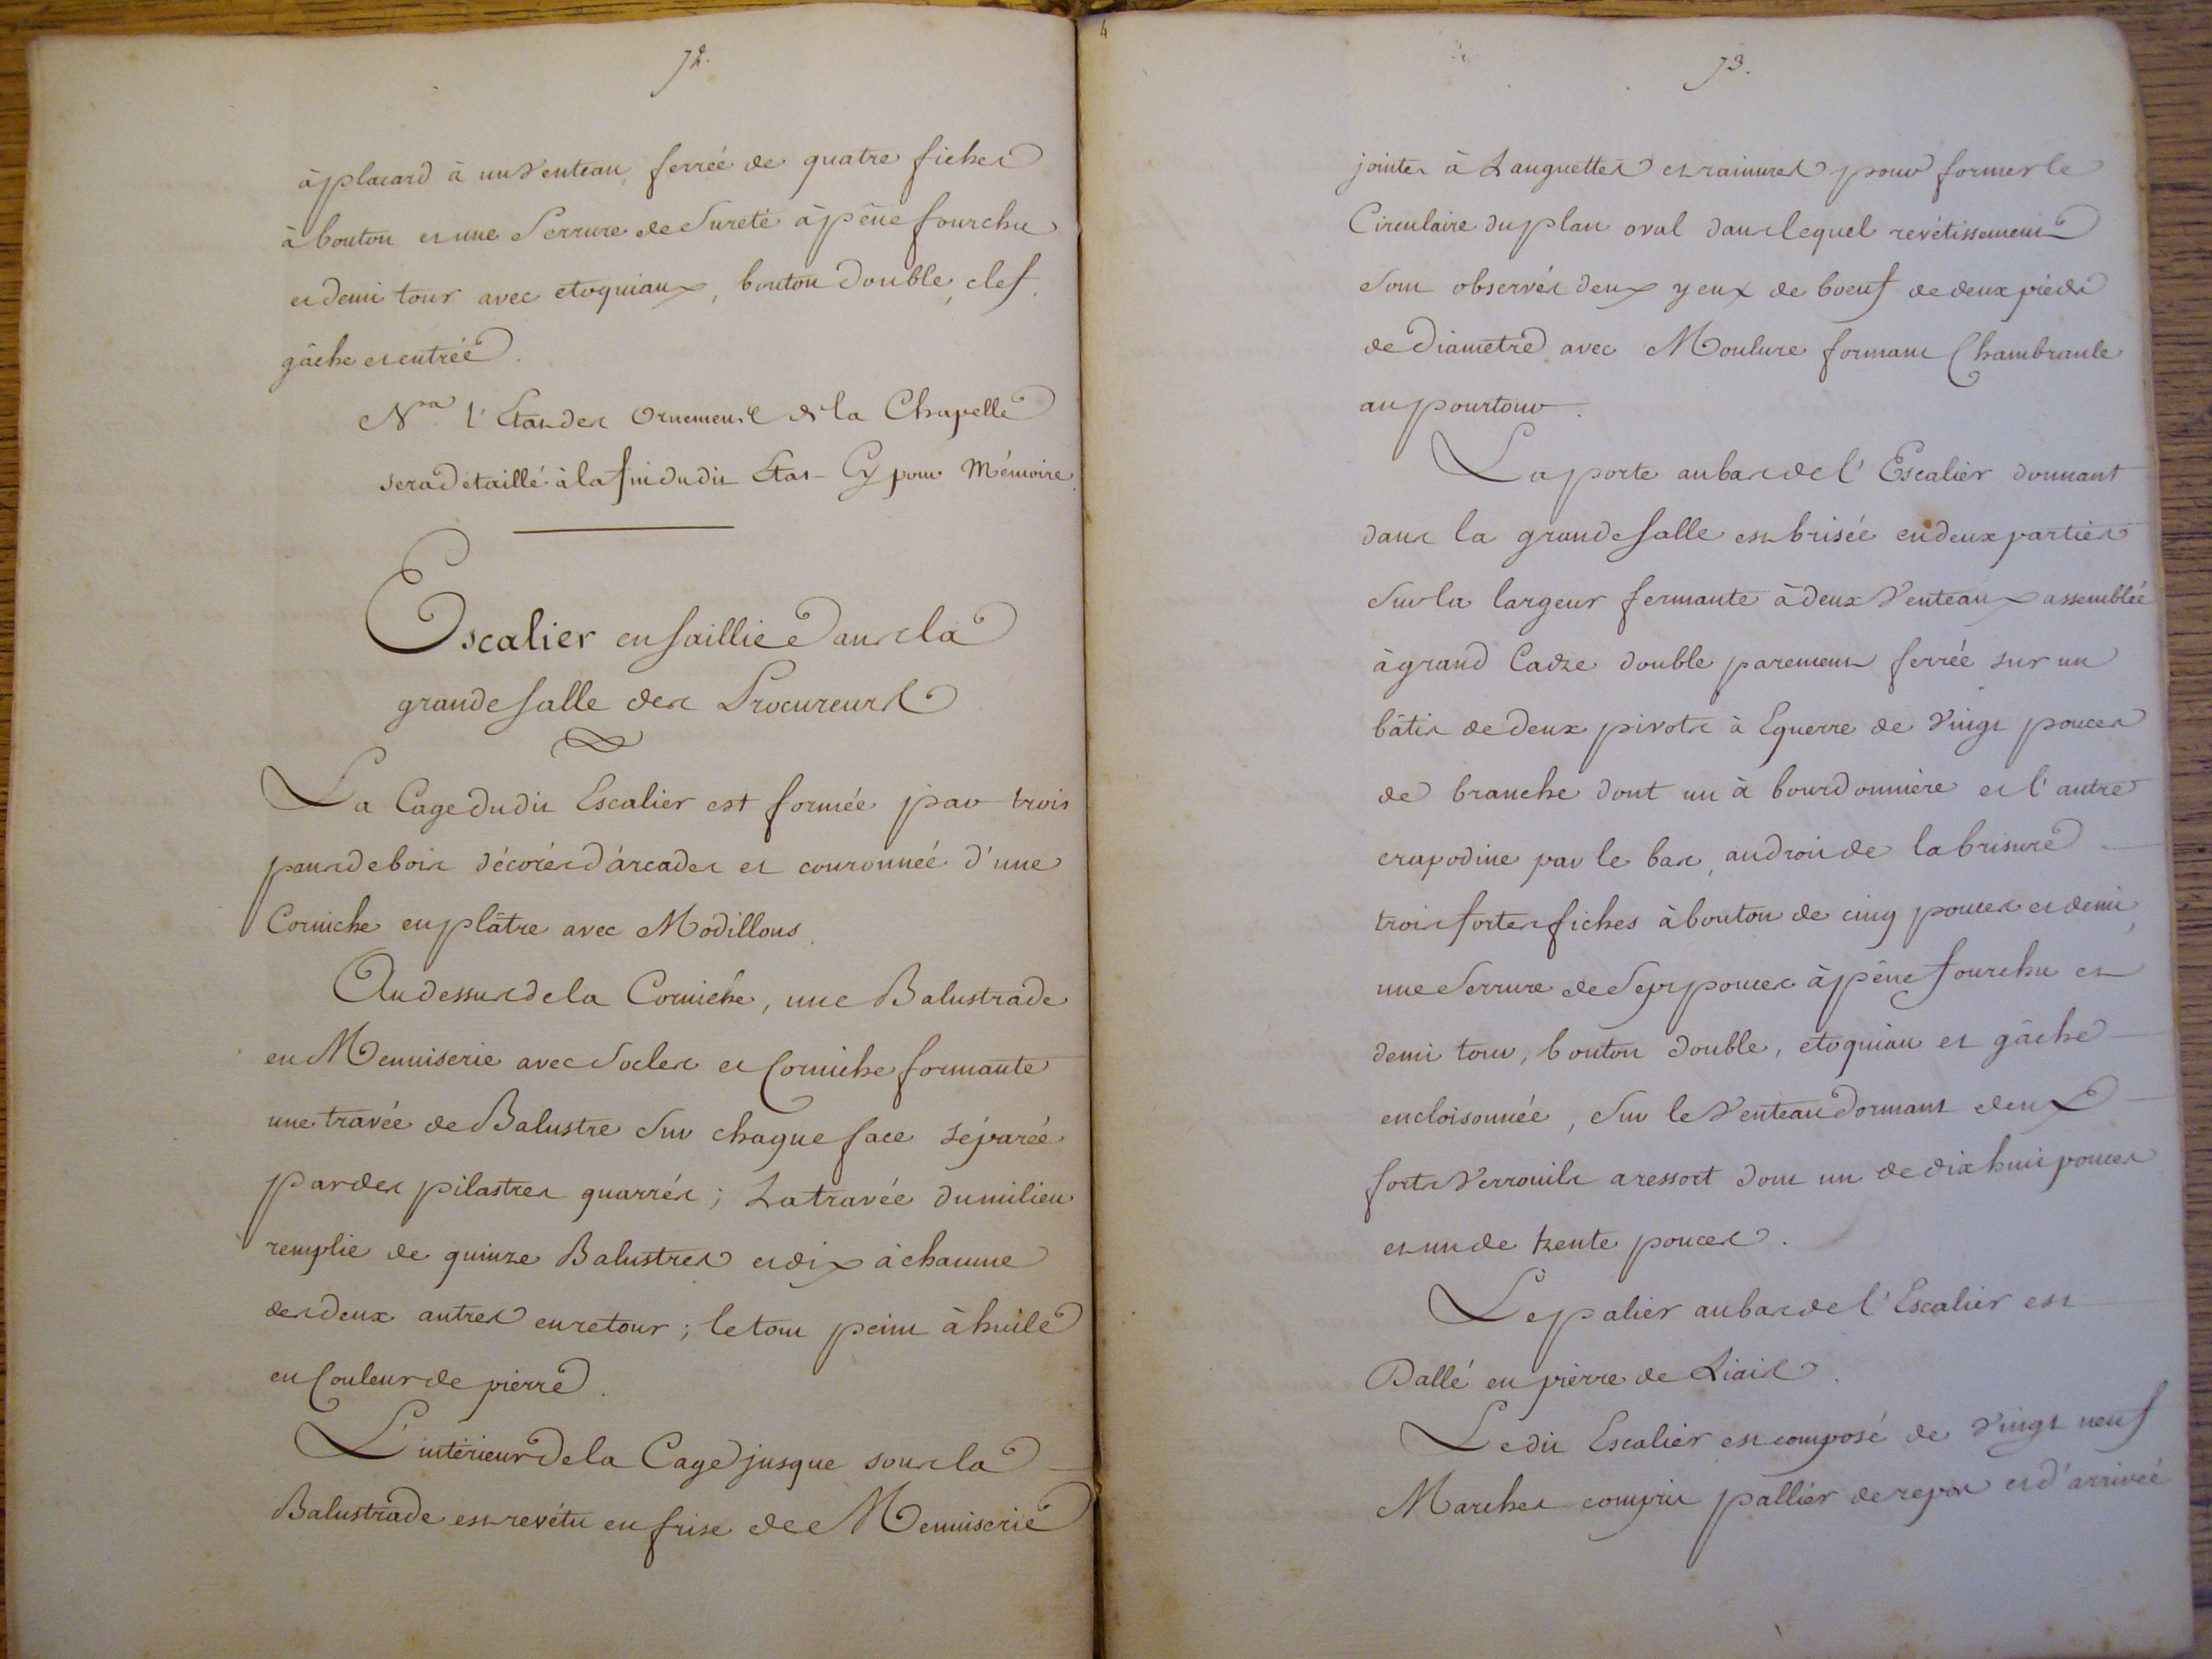 72.
à placard à un Venteau, ferrée de quatre fiches
à bouton et une Serrure de Sureté à pêne fourchu
et demi tour avec etoquiaux, bouton double, clef,
gâche et entrée.
Nota. l'Etat des Ornements de la Chapelle
sera détaillé à la fin du dit Etat - Cy pour Mémoire.
Escalier en Saillie dans la
grande Salle des Procureurs
La Cage dudit Escalier est formée par trois
pans de bois décorés d'arcades et couronnée d'une
Corniche en plâtre avec Modillons.
Au dessus de la Corniche, une Balustrade
en Menuiserie avec Socles et Corniche formante
une travée de Balustre Sur chaque face séparée
par des pilastres quarrés ; La travée du milieu
remplie de quinze Balustres et dix à chacune
des deux autres en retour ; le tout peint à huile
en Couleur de pierre.
L'intérieur de la Cage jusque sous la
Balustrade est revétu en frise de Menuiserie
4
73.
jointes à Languettes et rainures pour former le
Circulaire du plan oval dans lequel revétissement
Sont observés deux yeux de boeuf de deux pieds
de Diametre avec Moulure formant Chambranle
au pourtour.
La porte au bas de l'Escalier donnant
dans la grande Salle est brisée en deux parties
Sur la largeur fermante à deux Venteaux assemblée
à grand Cadre double parement ferrée sur un
bâtis de deux pivots à Equerre de Vingt pouces
de branche dont un à bourdonnière et l'autre
crapodine par le bas, au droit de la brisure
trois fortes fiches à bouton de cinq pouces et demi,
une Serrure de Sept pouces à pêne fourchu et
demi tour, bouton double, etoquiau et gâche
encloisonnée, Sur le Venteau dormant deux
forts Verrouils a ressort dont un de dix huit pouces
et un de trente pouces.
Le palier au bas de l'Escalier est
Dallé en pierre de Liais.
Le dit Escalier est composé de Vingt neuf
Marches compris pallier de repos et d'arrivée